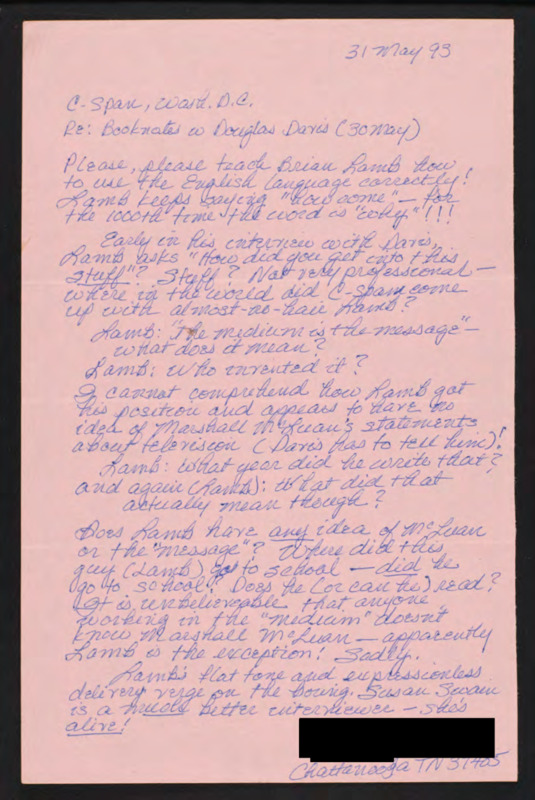 31 May 93
C-Span, Wash. D.C.
Re: Booknotes w Douglas Davis (30 May)
Please, please teach Brian Lamb how
to use the English language correctly!
Lamb keeps saying "how come" — for
the 1000th time the word is "why"!!!
Early in his interview with Davis,
Lamb asks "How did you get into this
stuff"? Stuff? Not very professional —
where in the world did C-Span come
up with almost-no-hair Lamb?
Lamb: "The medium is the message" —
what does it mean?
Lamb: Who invented it?
I cannot comprehend how Lamb got
his position and appears to have no
idea of Marshall McLuan's statements
about television (Davis has to tell him)!
Lamb: What year did he write that?
and again (Lamb): What did that
actually mean though?
Does Lamb have any idea of McLuan
or the "message"? Where did this
guy (Lamb) go to school — did he
go to school? Does he (or can he) read?
It is unbelieveable that anyone
working in the "medium" doesn't
know Marshall McLuan — apparently
Lamb is the exception! Sadly.
Lamb's flat tone and expressionless
delivery verge on the boring. Susan Swain
is a much better interviewer — she's
alive!
Chattanooga TN 37405